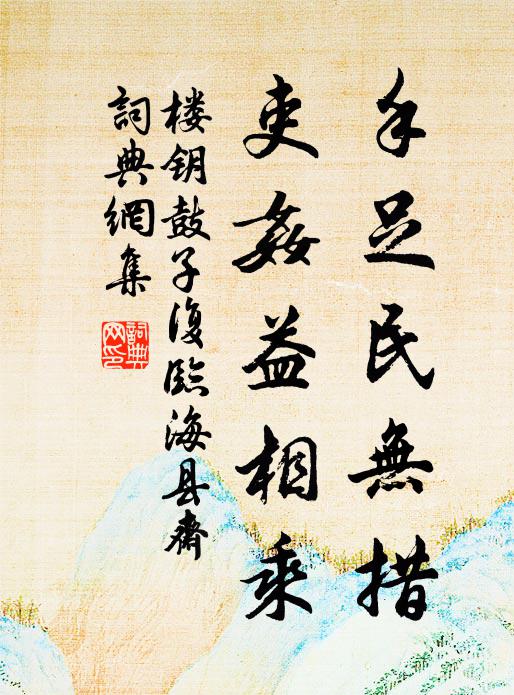 手足民無措
吏姦益相乘
楼钥鼓子復臨海县齋
詞典網集
詞典網印